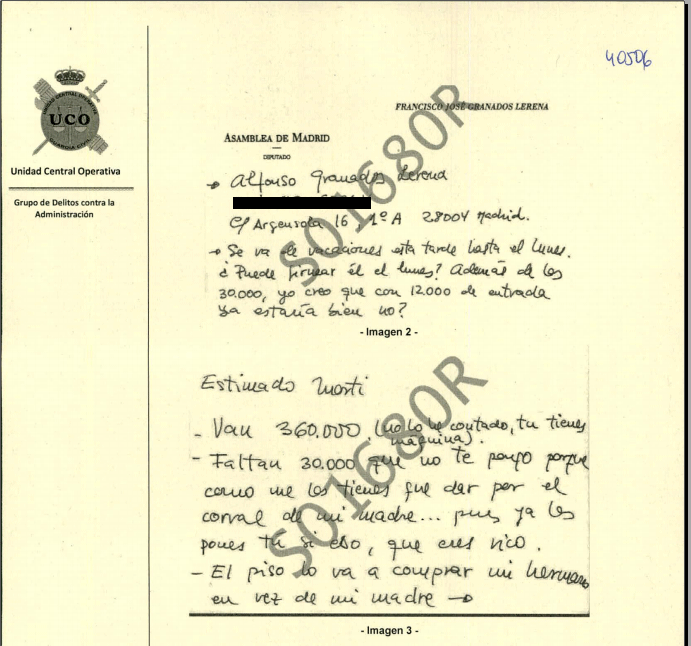 40506
UNIDAD CENTRAL OPERATIVA
UCO
GUARDIA CIVIL
Unidad Central Operativa
Grupo de Delitos contra la
Administración
FRANCISCO JOSÉ GRANADOS LERENA
ASAMBLEA DE MADRID
DIPUTADO
→ Alfonso Granados Lerena
C/ Argensola 16, 1º A 28004 Madrid.
→ Se va de vacaciones esta tarde hasta el lunes.
¿Puede firmar él el lunes? Además de los
30.000, yo creo que con 12.000 de entrada
ya estaría bien no?
S01680R
- Imagen 2 -
Estimado Marti
- Van 360.000 (no lo he contado, tu tienes
máquina).
- Faltan 30.000 que no te pongo porque
como me los tienes que dar por el
corral de mi madre... pues ya los
pones tu si eso, que eres rico.
- El piso lo va a comprar mi hermano
en vez de mi madre →
S01680R
- Imagen 3 -